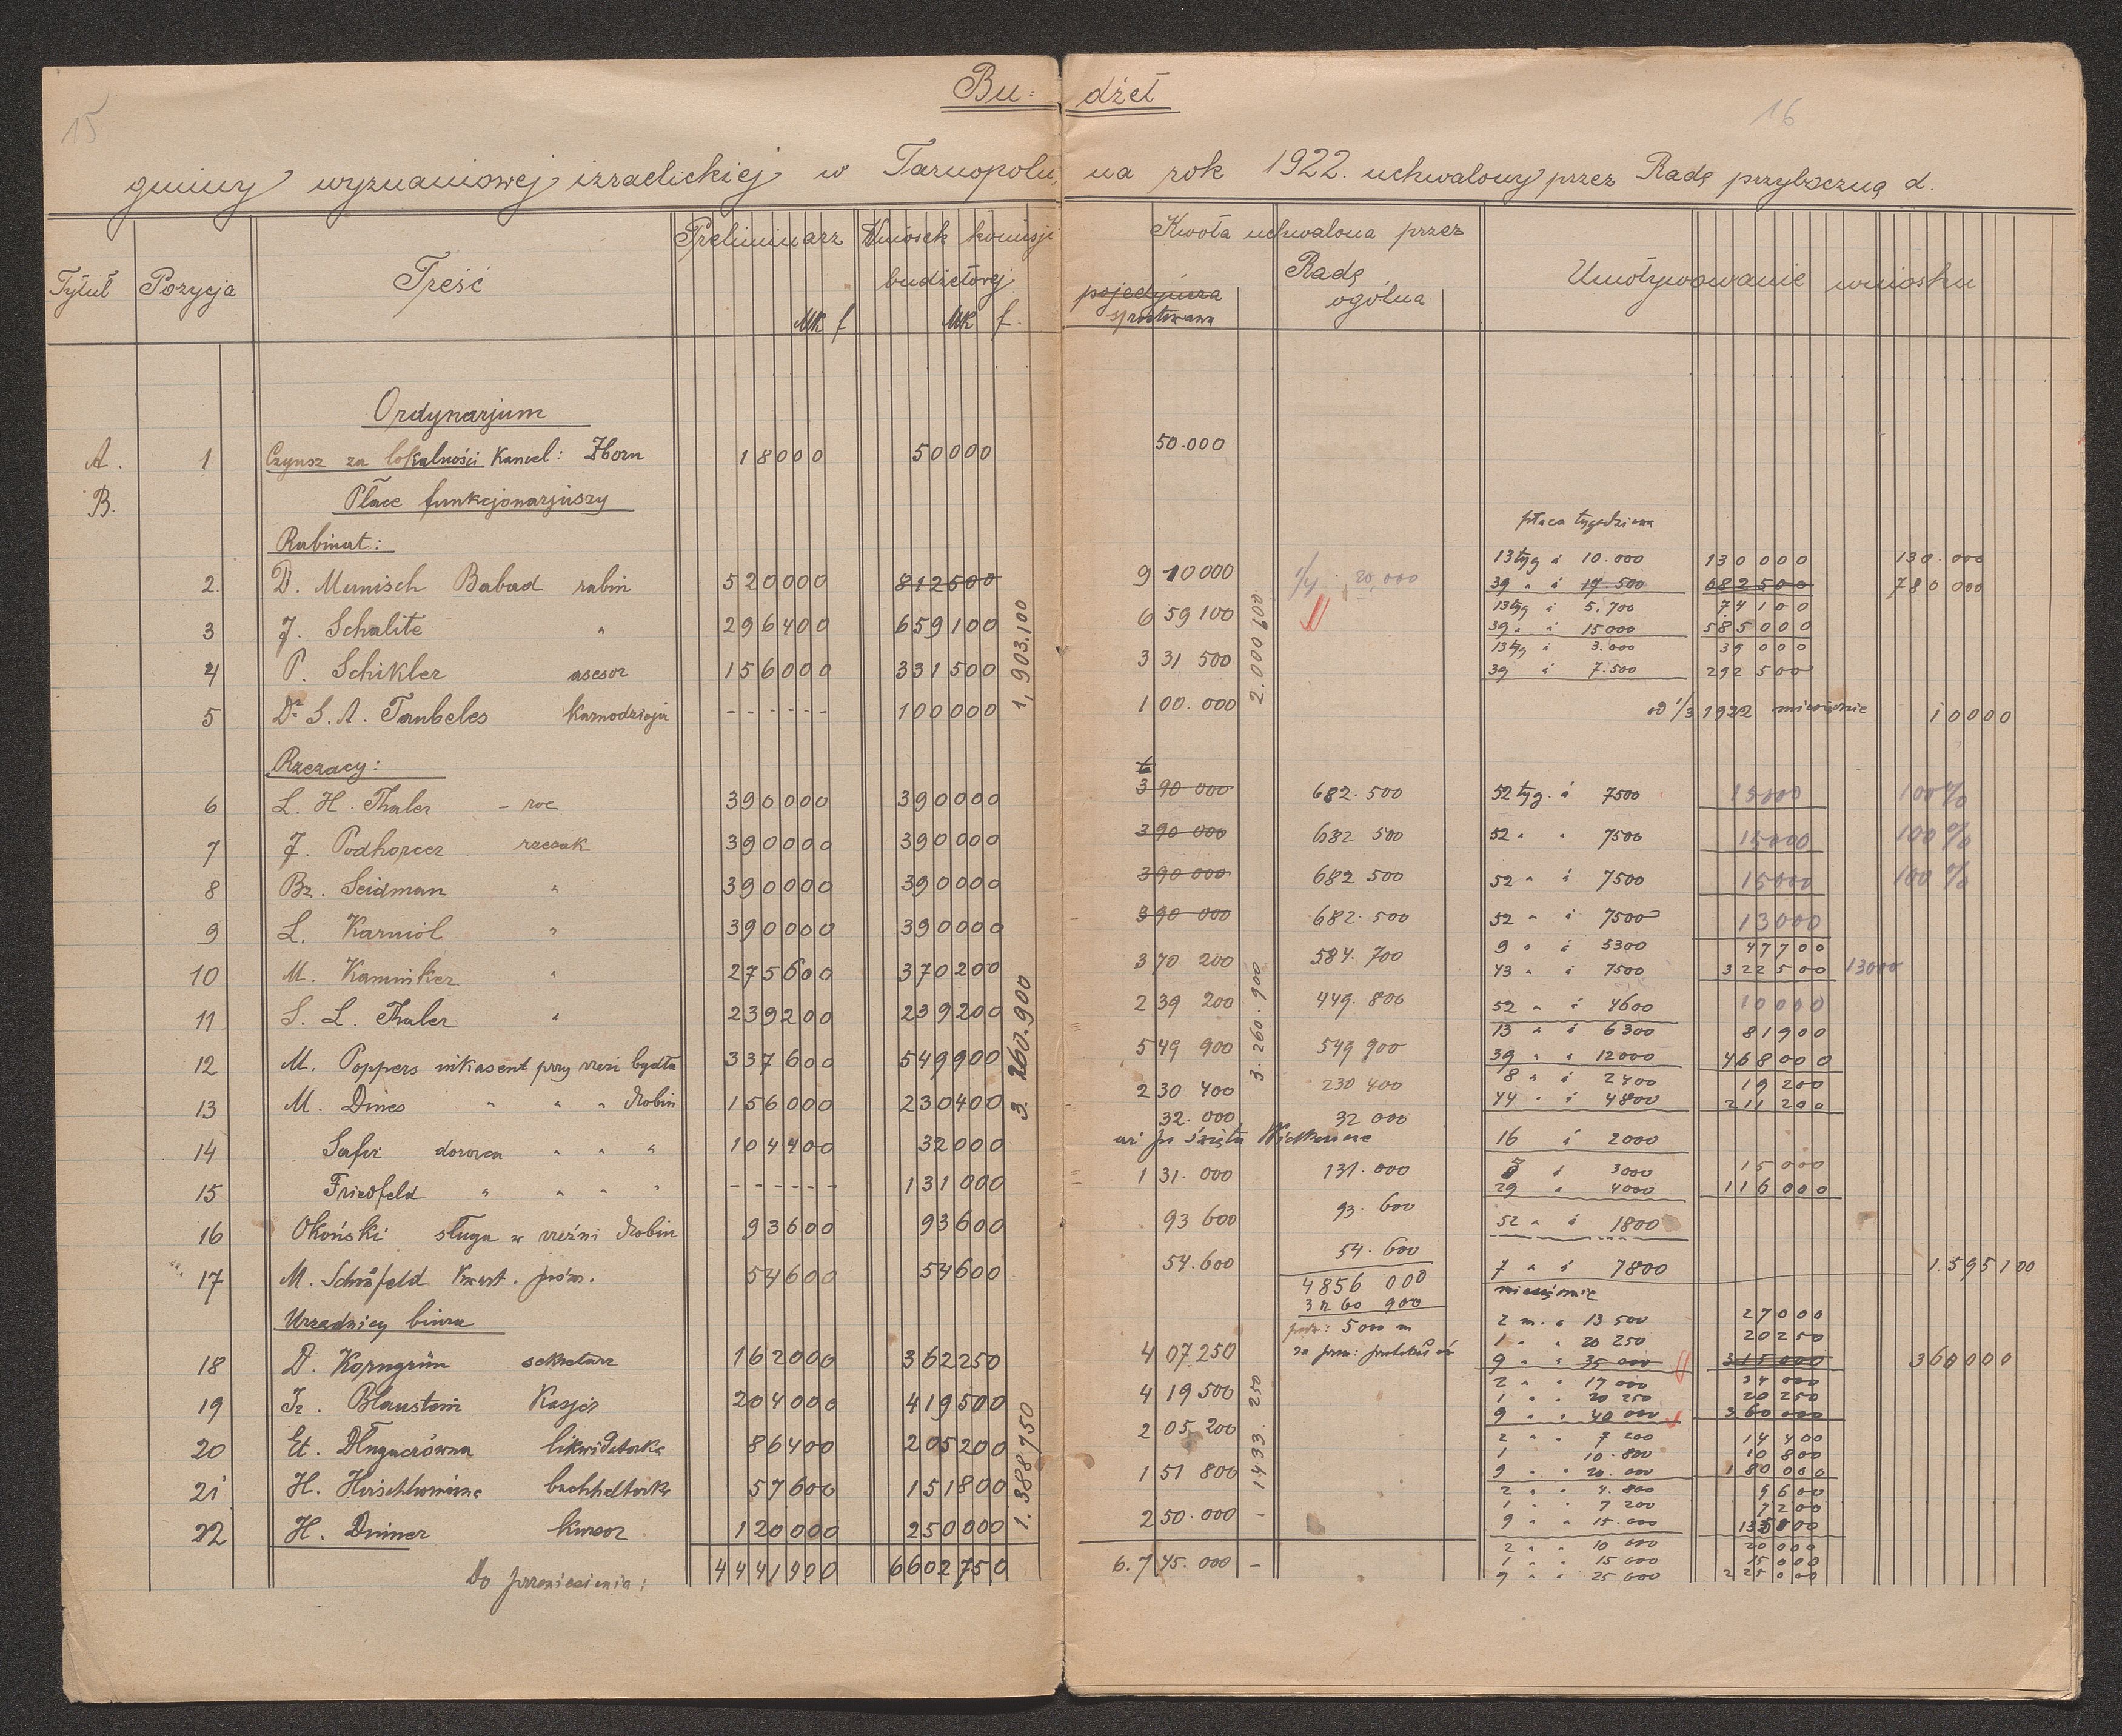 15
16
Bu: dżet
gminy wyznaniowej izraelickiej w Tarnopolu, na rok 1922. uchwalony przez Radę przyboczną d.
Tytuł Pozycja Treść Preliminarz Wniosek komisji budżetowej Kwota uchwalona przez Radę Umotywowanie wniosku
Mk f Mk f. pojedyńcza sprostowana ogólna
Ordynarjum
A. 1 Czynsz za lokalności kancel: Horn 18000 50000 50.000
B. Płace funkcjonarjuszy
płaca tygodniowa
Rabinat:
13 tyg á 10.000 130000 130.000
2. D. Munisch Babad rabin 520000 812500 910000 1/4 20,000 39 " á 17.500 682500 780000
13 tyg á 5.700 74100
3 J. Schalite " 296400 659100 659100 39 " á 15000 585000
13 tyg á 3.000 39000
4 P. Schikler asesor 156000 331500 331500 39 á 7.500 292500
5 Dr. S. A. Taubeles Kaznodzieja ------ 100000 100.000 od 1/3 1922 miesięcznie 10000
1,903.100
2.000600
Rzezacy:
6 L. H. Thaler - roc 390000 390000 390 000 682.500 52 tyg. á 7500 15000 100%
7 J. Podhorcer rzezak 390000 390000 390 000 682 500 52 " " 7500 15000 100%
8 Bz. Seidman " 390000 390000 390 000 682 500 52 " á 7500 15000 100%
9 L. Karniol " 390000 390000 390 000 682.500 52 " á 7500 13000
9 " á 5300 47700
10 M. Kaminker " 275600 370200 370 200 584.700 43 " á 7500 322500 13000
11 S. L. Thaler " 239200 239200 239 200 449.800 52 " á 4600 10000
13 " á 6300 81900
12 M. Poppers inkasent przy rzezi bydła 337600 549900 549 900 549 900 39 " á 12000 468000
8 " á 2400 19200
13 M. Dines " " " drobiu 156000 230400 230 400 230 400 44 " á 4800 211200
14 Safir dozorca " " " 104400 32000 32.000 32 000 16 á 2000
5 á 3000 15000
15 Friedfeld " " " " ------ 131000 131.000 131.000 29 " 4000 116000
16 Okoński sługa w rzeźni drobiu 93600 93600 93 600 93.600 52 " á 1800
17 M. Schöfeld kwart. 54600 54600 54.600 54.600 7 " á 7800 1.595100
3 260.900
3.260.900
4856 000
3260 900
Urzędnicy biura
miesięcznie
2 m. á 13 500 27000
5000 m
1 " " 20 250 20250
18 D. Korngrün sekretarz 162000 362250 407250 9 " " 35 000 315000 360000
2 " " 17 000 34000
1 " " 20 250 20250
19 Iz. Blaustein Kasjer 204000 419500 419500 9 " " 40 000 360000
2 " " 7 200 14400
1 10.800 10800
20 Et. Długaczówna likwidatorka 86400 205200 205 200 9 " " 20.000 180000
2 " " 4.800 9600
1 " " 7 200 7200
21 H. Hirschhornówna buchhaltorka 57600 151800 151 800 9 " " 15.000 135000
2 " " 10 000 20000
1 " " 15 000 15000
22 H. Dimer kursor 120000 250000 250.000 - 9 " " 25 000 225000
1.388750
1433.250
Do przeniesienia: 4441400 6602750 6.745.000 -